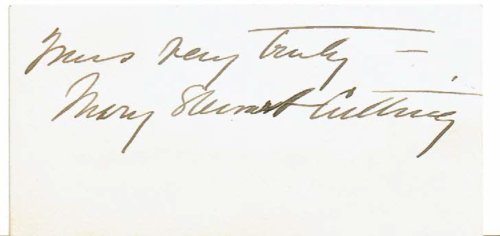 Yours very truly —
Mary Stewart Cutting